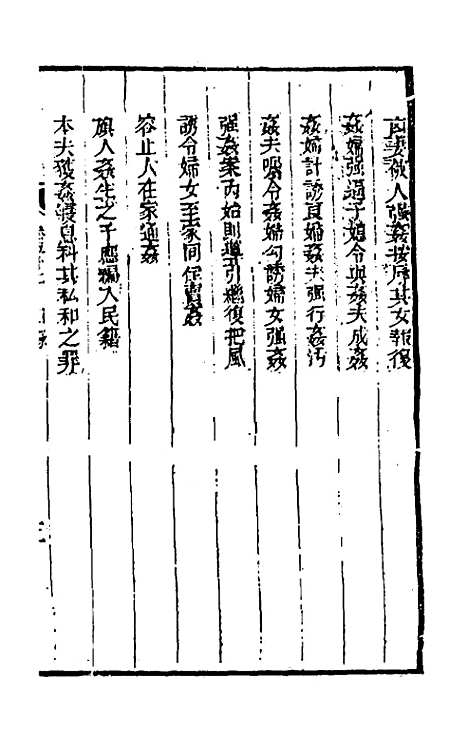 人强姦按居其女報復
姦婦强逼子媳令與姦夫成姦
姦婦計誘良婦姦夫强行姦汚
姦夫囑令姦婦勾誘婦女强姦
强姦案內始則導引繼復把風
誘令婦女至家同住賣姦
容止人在家通姦
旗人姦生之子應編入民籍
本夫獲姦寢息科其私和之罪